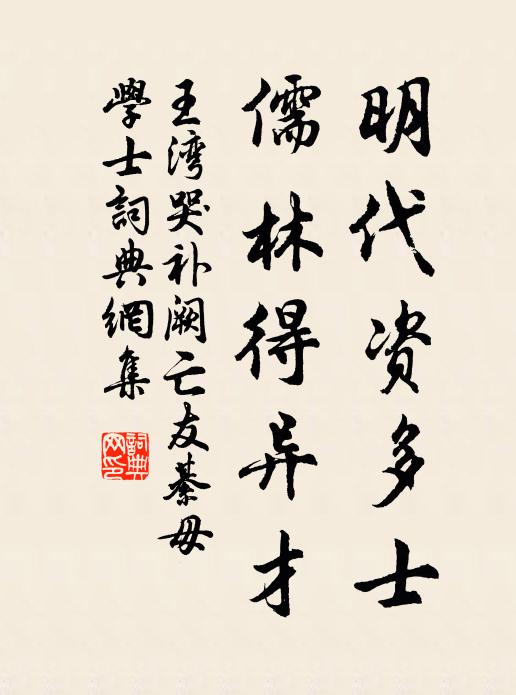 明代资多士
儒林得异才
王湾哭补阙亡友綦毋
學士詞典網集
詞典网印